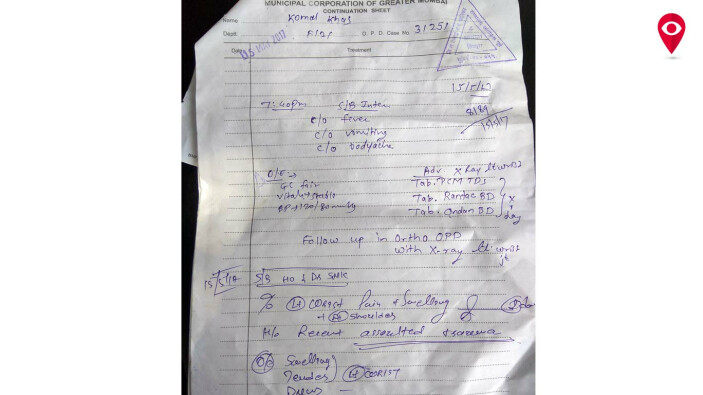 MUNICIPAL CORPORATION OF GREATER MUMBAI
CONTINUATION SHEET
Name Komal
Deptt F/21 O. P. D. Case No. 31251
Date 15 MAY 2017 Treatment
15/5/17
7:40pm S/B Intern 8189
c/o fever 15/5/17
c/o vomiting
c/o bodyache
O/E Adv X Ray Lt wrist
GC fair Tab. PCM TDS
Vitals stable Tab. Rantac BD x
BP 120/80 mmHg Tab. Ondan BD day
Follow up in Ortho OPD
with X-ray Lt. wrist
jt
S/B HO & Ds SMK
c/o Lt wrist Pain & Swelling
shoulder
H/o Recent assaulted trauma
O/E Swelling
Tender Lt wrist